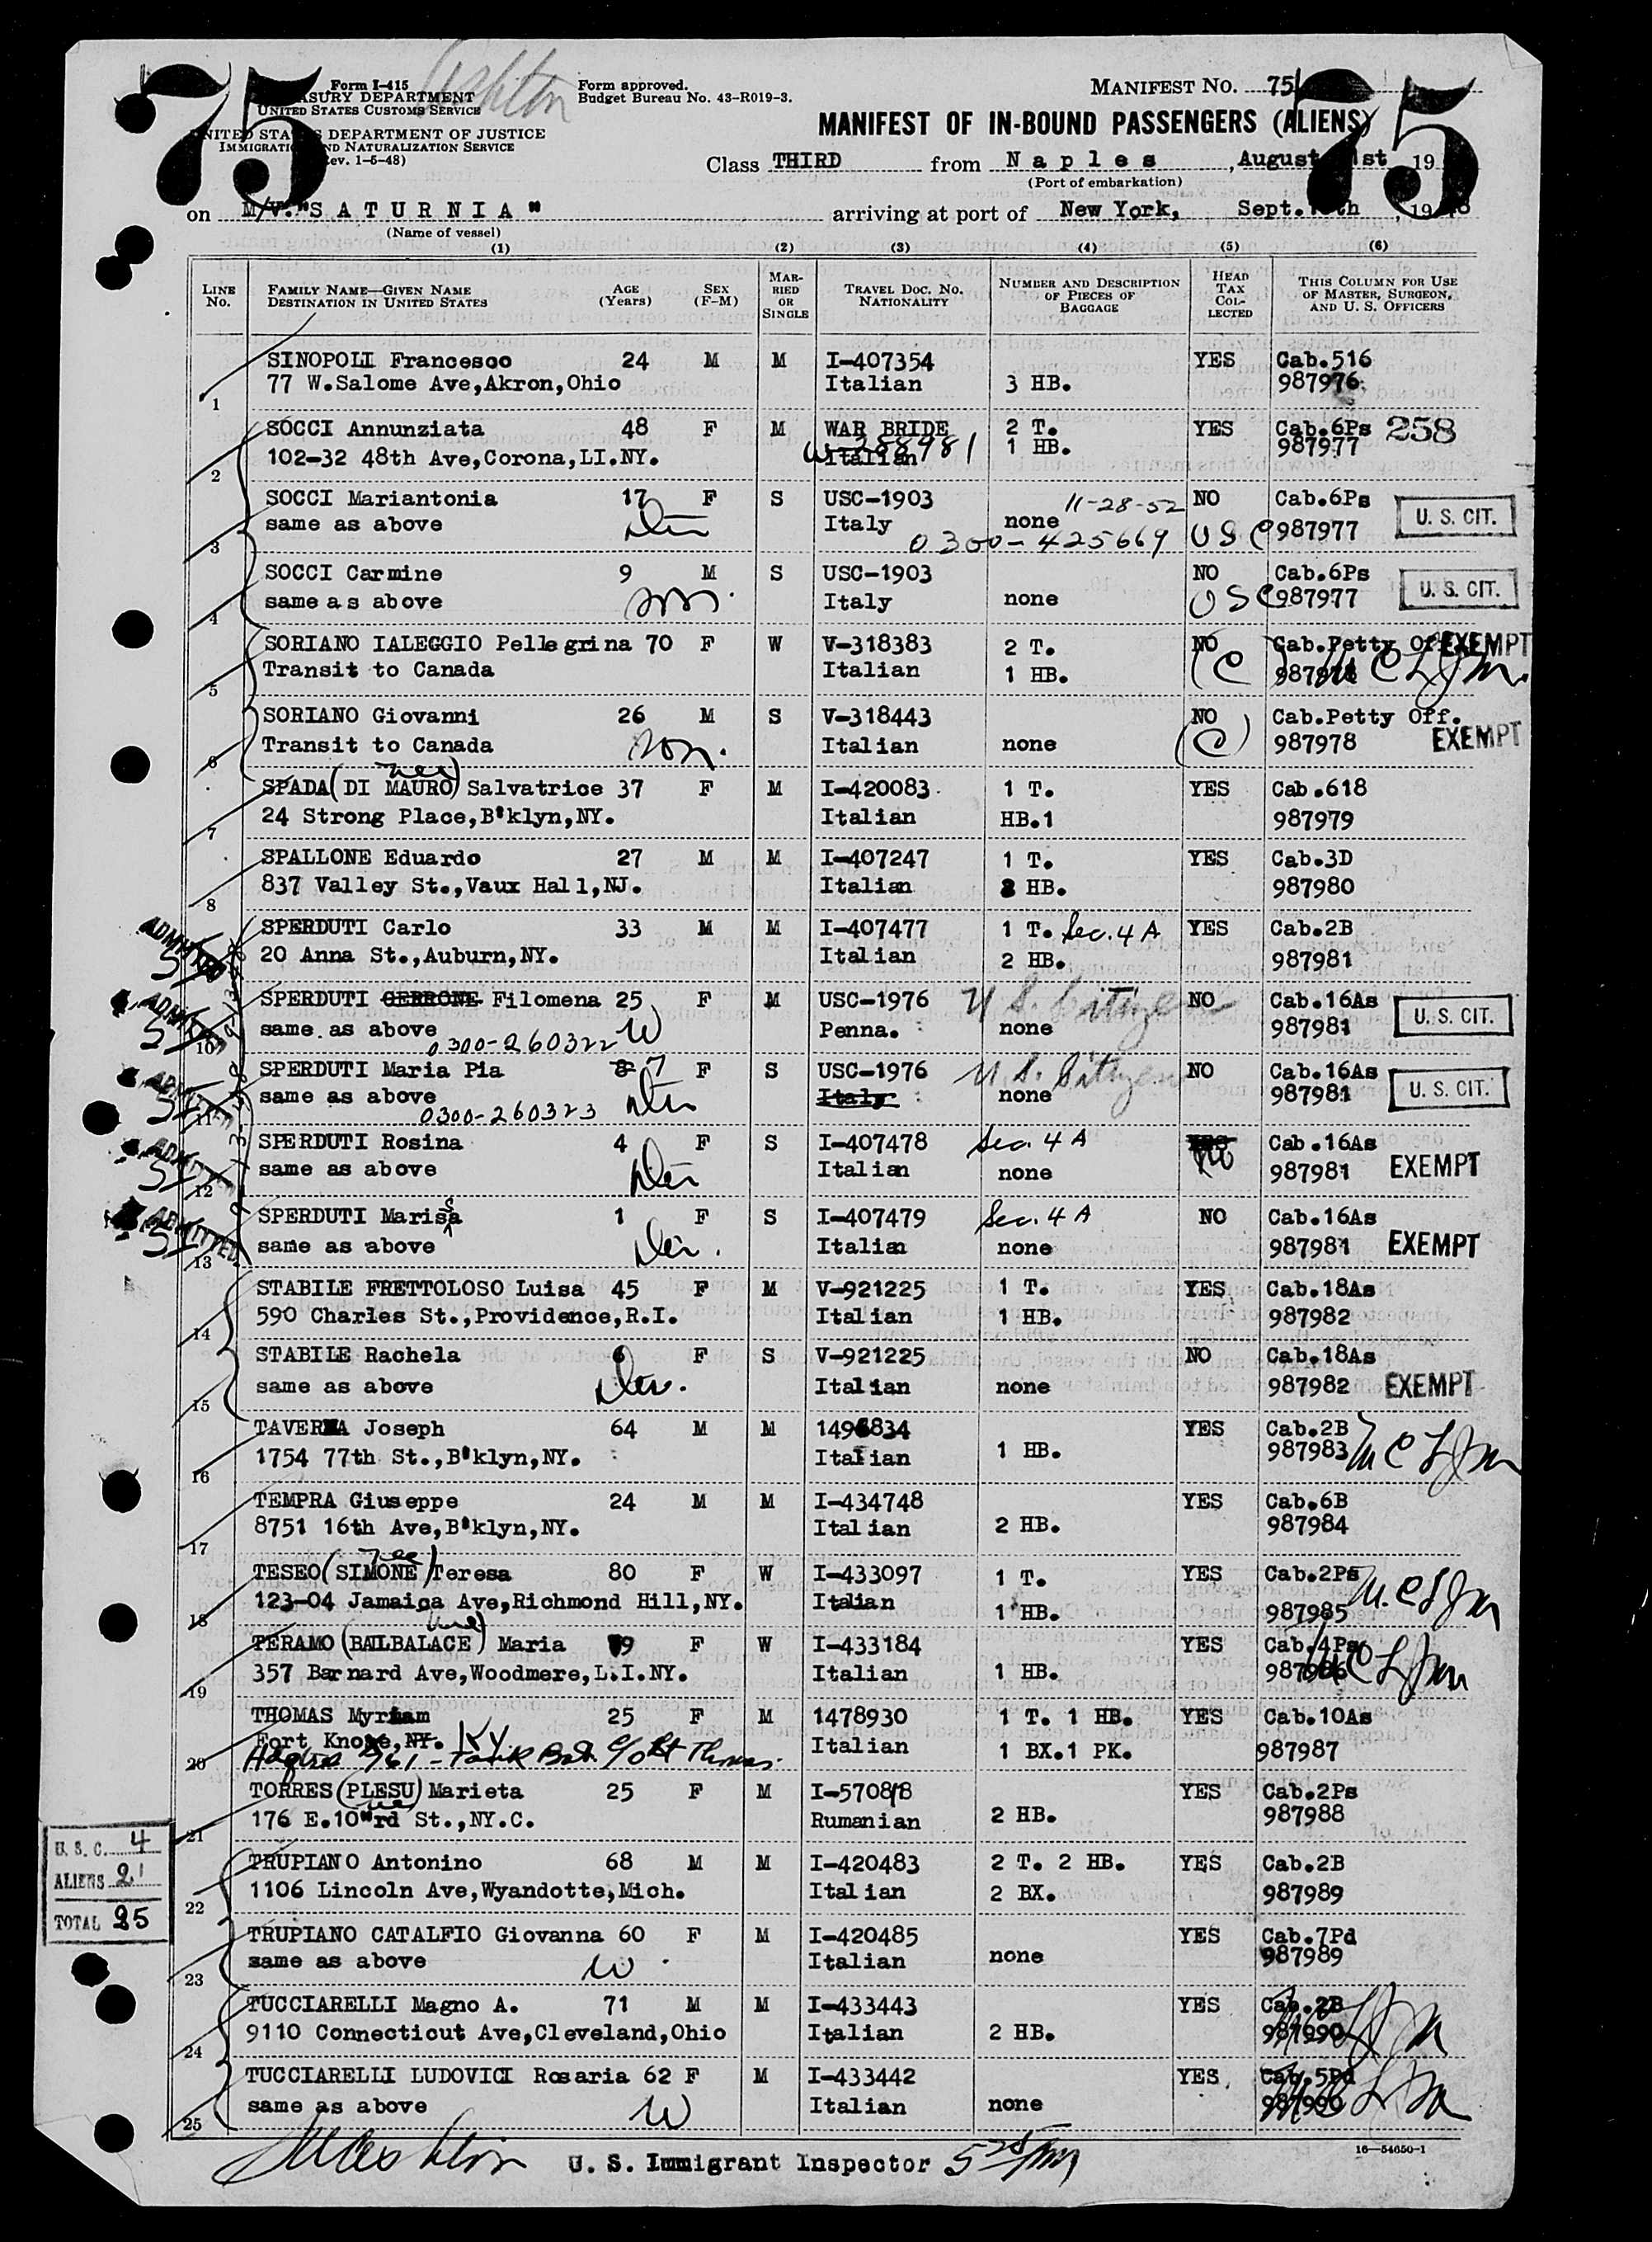 75
75
Form I-415
TREASURY DEPARTMENT
UNITED STATES CUSTOMS SERVICE
UNITED STATES DEPARTMENT OF JUSTICE
IMMIGRATION AND NATURALIZATION SERVICE
(Rev. 1-5-48)
Ashton
Form approved.
Budget Bureau No. 43-R019-3.
MANIFEST NO. 75
MANIFEST OF IN-BOUND PASSENGERS (ALIENS)
Class THIRD from Naples, August 31st 19
(Port of embarkation)
on M/V. "SATURNIA" arriving at port of New York, Sept. 19
(Name of vessel)
(1) (2) (3) (4) (5) (6)
LINE No. FAMILY NAME—GIVEN NAME DESTINATION IN UNITED STATES AGE (Years) SEX (F-M) MARRIED OR SINGLE TRAVEL DOC. NO. NATIONALITY NUMBER AND DESCRIPTION OF PIECES OF BAGGAGE HEAD TAX COLLECTED THIS COLUMN FOR USE OF MASTER, SURGEON, AND U. S. OFFICERS
SINOPOLI Francesco 24 M M I-407354 YES Cab.516
1 77 W.Salome Ave,Akron,Ohio Italian 3 HB. 987976
SOCCI Annunziata 48 F M WAR BRIDE 2 T. YES Cab.6Ps 258
W-288981
2 102-32 48th Ave,Corona,LI.NY. Italian 1 HB. 987977
SOCCI Mariantonia 17 F S USC-1903 11-28-52 NO Cab.6Ps
3 same as above Italy none USC 987977 U. S. CIT.
0300-425669
SOCCI Carmine 9 M S USC-1903 NO Cab.6Ps
4 same as above Italy none USC 987977 U. S. CIT.
SORIANO IALEGGIO Pellegrina 70 F W V-318383 2 T. NO Cab.Petty Off. EXEMPT
5 Transit to Canada Italian 1 HB. (C) 987978
SORIANO Giovanni 26 M S V-318443 NO Cab.Petty Off.
6 Transit to Canada Italian none (C) 987978 EXEMPT
nee
SPADA (DI MAURO) Salvatrice 37 F M I-420083 1 T. YES Cab.618
7 24 Strong Place,B'klyn,NY. Italian HB.1 987979
SPALLONE Eduardo 27 M M I-407247 1 T. YES Cab.3D
8 837 Valley St.,Vaux Hall,NJ. Italian HB. 987980
ADMITTED SPERDUTI Carlo 33 M M I-407477 1 T. Sec. 4 A YES Cab.2B
20 Anna St.,Auburn,NY. Italian 2 HB. 987981
ADMITTED SPERDUTI CERRONE Filomena 25 F M USC-1976 U.S. Citizen NO Cab.16As
10 same as above W Penna. none 987981 U. S. CIT.
0300-260322
ADMITTED SPERDUTI Maria Pia 8 7 F S USC-1976 U.S. Citizen NO Cab.16As
11 same as above Italy none 987981 U. S. CIT.
0300-260323
ADMITTED SPERDUTI Rosina 4 F S I-407478 Sec. 4 A No Cab.16As
12 same as above Italian none 987981 EXEMPT
ADMITTED SPERDUTI Marisa 1 F S I-407479 Sec. 4 A NO Cab.16As
13 same as above Italian none 987981 EXEMPT
STABILE FRETTOLOSO Luisa 45 F M V-921225 1 T. YES Cab.18As
14 590 Charles St.,Providence,R.I. Italian 1 HB. 987982
STABILE Rachela 6 F S V-921225 NO Cab.18As
15 same as above Italian none 987982 EXEMPT
TAVERNA Joseph 64 M M 1496834 YES Cab.2B
16 1754 77th St.,B'klyn,NY. Italian 1 HB. 987983
TEMPRA Giuseppe 24 M M I-434748 YES Cab.6B
17 8751 16th Ave,B'klyn,NY. Italian 2 HB. 987984
nee
TESEO (SIMONE) Teresa 80 F W I-433097 1 T. YES Cab.2Ps
18 123-04 Jamaica Ave,Richmond Hill,NY. Italian 1 HB. 987985
nee
TERAMO (BALBALACE) Maria 79 F W I-433184 YES Cab.4Ps
19 357 Barnard Ave,Woodmere,L.I.NY. Italian 1 HB. 987986
THOMAS Myriam 25 F M 1478930 1 T. 1 HB. YES Cab.10As
Fort Knoxe,NY. KY Italian 1 BX.1 PK. 987987
20 Hdqtrs 761 - Tank Bat. c/o Thomas
TORRES (PLESU) Marieta 25 F M I-570878 YES Cab.2Ps
nee
21 176 E.103rd St.,NY.C. Rumanian 2 HB. 987988
TRUPIANO Antonino 68 M M I-420483 2 T. 2 HB. YES Cab.2B
22 1106 Lincoln Ave,Wyandotte,Mich. Italian 2 BX. 987989
TRUPIANO CATALFIO Giovanna 60 F M I-420485 YES Cab.7Pd
23 same as above W Italian none 987989
TUCCIARELLI Magno A. 71 M M I-433443 YES Cab.2B
24 9110 Connecticut Ave,Cleveland,Ohio Italian 2 HB. 987990
TUCCIARELLI LUDOVICI Rosaria 62 F M I-433442 YES Cab.5Pd
25 same as above W Italian none 987990
U. S. C. 4
ALIENS 21
TOTAL 25
16—54650-1
U. S. Immigrant Inspector